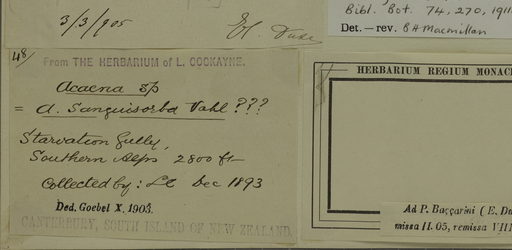 3/3/905
Bibl. Bot. 74, 270, 1911
Det. – rev. BH Macmillan
48/
From THE HERBARIUM of L. COCKAYNE.
Acaena sp
= A. Sanguisorba Vahl ???
Starvation Gully,
Southern Alps 2800 ft
Collected by: LC Dec 1893
Ded. Goebel X. 1903.
CANTERBURY, SOUTH ISLAND OF NEW ZEALAND.
HERBARIUM REGIUM MONAC
Ad P. Baccarini (E. Du
missa II. 05, remissa VIII